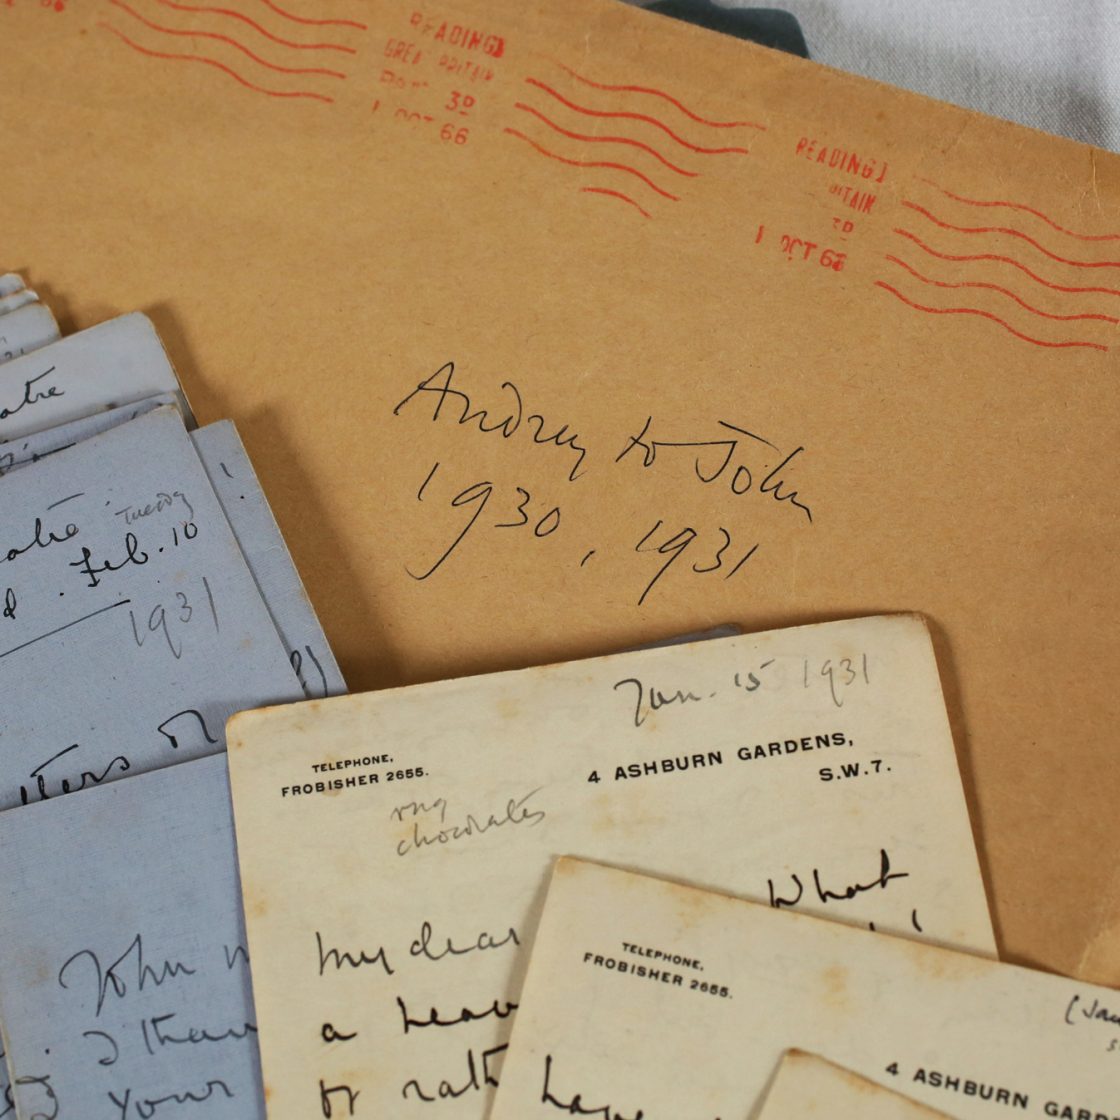 READING
GREAT BRITAIN
3D
1 OCT 66
READING
3D
1 OCT 66
Audrey to John
1930, 1931
Tuesday
Feb. 10
1931
John
I than
your
Jan. 15 1931
TELEPHONE,
FROBISHER 2655.
4 ASHBURN GARDENS,
S.W.7.
rug
chocolates
What
My dear
a heav
or rath
TELEPHONE,
FROBISHER 2655.
(Jan
4 ASHBURN GARD
have